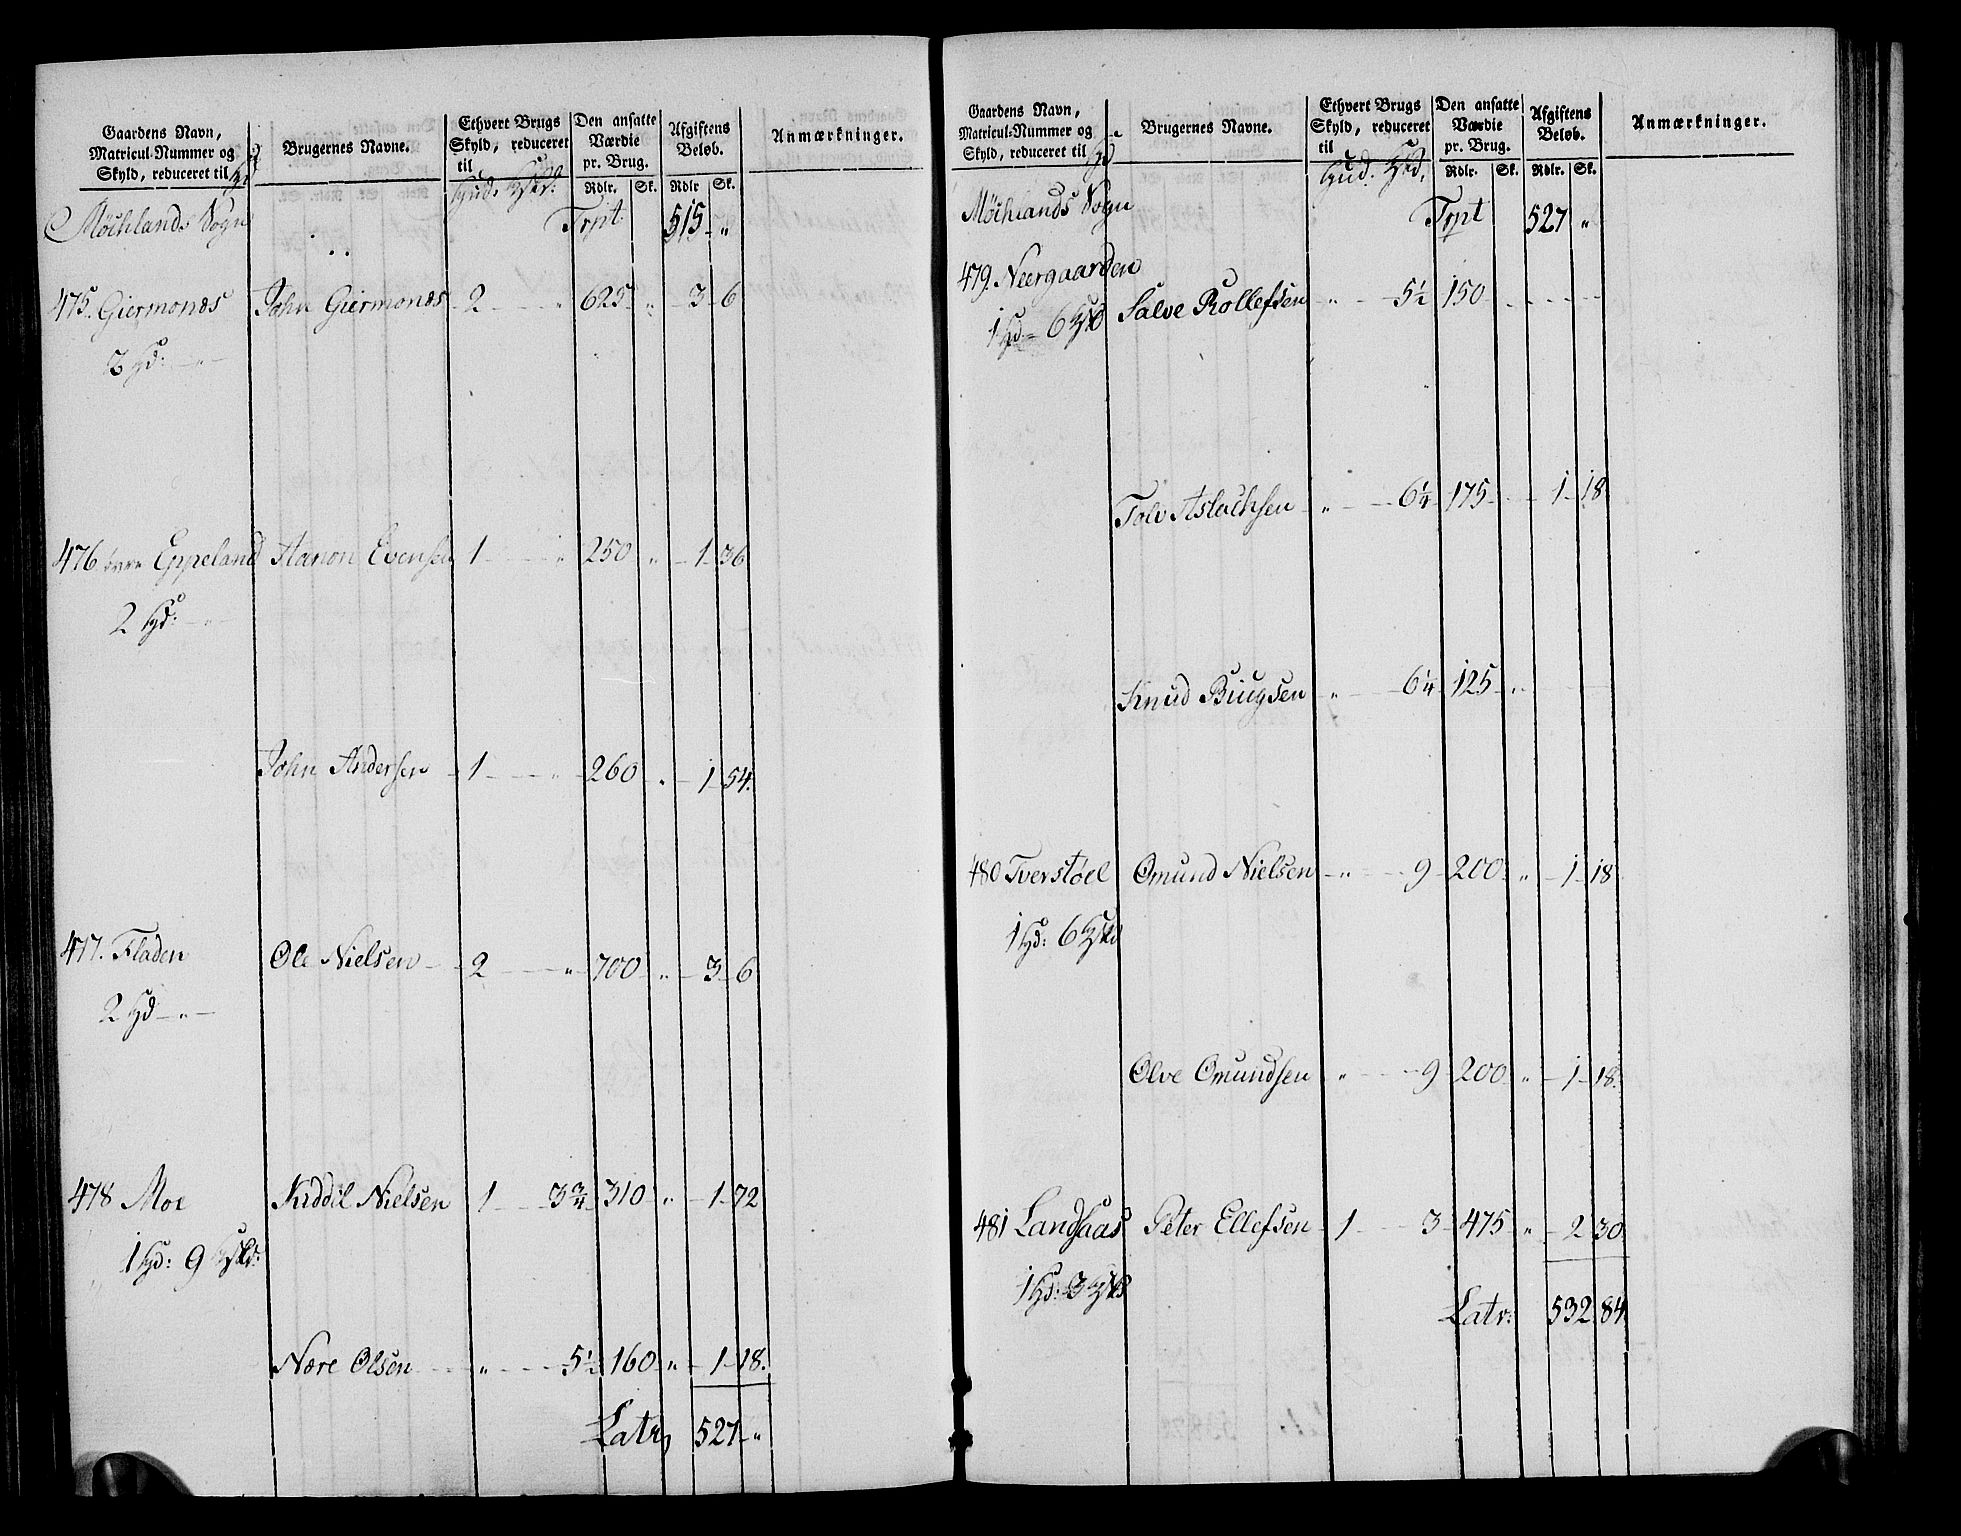 Gaardens Navn,
Matricul-Nummer og
Skyld, reduceret til
Brugernes Navne.
Ethvert Brugs
Skyld, reduceret
til
Hud. Hskd.
Den ansatte
Værdie
pr. Brug.
Rdlr. Sk.
Afgiftens
Beløb.
Rdlr Sk.
Anmærkninger.
Møchlands Sogn Trpt. 515 "
475. Giermonæs John Giermonæs 2 " 625 " 3 6
3 Hd: "
476 øvre Eppeland Aanon Evensen 1 " 250 " 1 36
2 Hd: "
John Andersen 1 " 260 " 1 54.
477. Fladen Ole Nielsen 2 " 700 " 3 6
2 Hd "
478 Moe Kiddil Nielsen 1 3 3/4 310 " 1 72
1 Hd: 9 Hskd:
Nære Olsen " 5 1/2 160 " 1 18.
Latr, 527 "
Gaardens Navn,
Matricul-Nummer og
Skyld, reduceret til Hd
Brugernes Navne.
Ethvert Brugs
Skyld, reduceret
til
Hud. Hskd.
Den ansatte
Værdie
pr. Brug.
Rdlr. Sk.
Afgiftens
Beløb.
Rdlr. Sk.
Anmærkninger.
Møchlands Sogn Trpt 527 "
479. Neergaarden
1 Hd 6 Hskd Salve Rollefsen " 5 1/2 150
Tolv Aslachsen " 6 1/4 175 1 18
Knud Biugsen " 6 1/4 125 "
480 Tverstøel Omund Nielsen " 9 200 " 1 18
1 Hd: 6 Hskd
Olve Omundsen " 9 200 " 1 18.
481 Landsaas Peter Ellefsen 1 3 475 " 2 30
1 Hd: 3 Hskd
Latr: 532 84